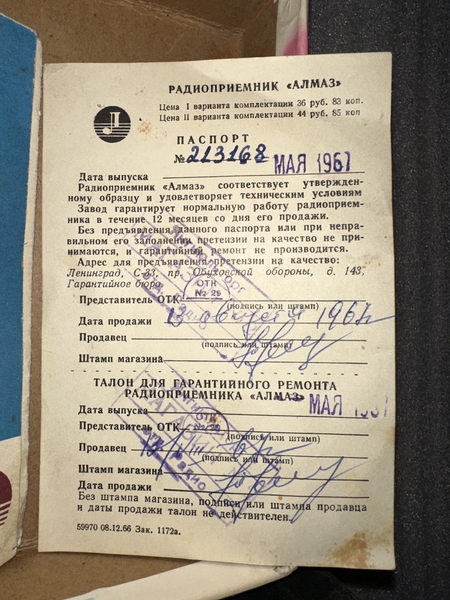 РАДИОПРИЕМНИК «АЛМАЗ»
Цена I варианта комплектации 36 руб. 83 коп.
Цена II варианта комплектации 44 руб. 85 коп
ПАСПОРТ
№ 213168
Дата выпуска МАЯ 1967
Радиоприемник «Алмаз» соответствует утвержден-
ному образцу и удовлетворяет техническим условиям
Завод гарантирует нормальную работу радиоприем-
ника в течение 12 месяцев со дня его продажи.
Без предъявления данного паспорта или при неправ-
вильном его заполнении претензии на качество не при-
нимаются, и гарантийный ремонт не производится.
Адрес для предъявления претензий на качество:
Ленинград, С-33, пр. Обуховской обороны, д. 143,
Гарантийное бюро.
ОТК
№ 26
Представитель ОТК
(подпись или штамп)
Дата продажи 13 августа 1967г
Продавец
(подпись или штамп)
Штамп магазина
ТАЛОН ДЛЯ ГАРАНТИЙНОГО РЕМОНТА
РАДИОПРИЕМНИКА «АЛМАЗ»
Дата выпуска МАЯ 1967
ОТК
Представитель ОТК
(подпись или штамп)
Продавец
(подпись или штамп)
Штамп магазина
Дата продажи
Без штампа магазина, подписи или штампа продавца
и даты продажи талон не действителен.
59970 08.12.66 Зак. 1172а.